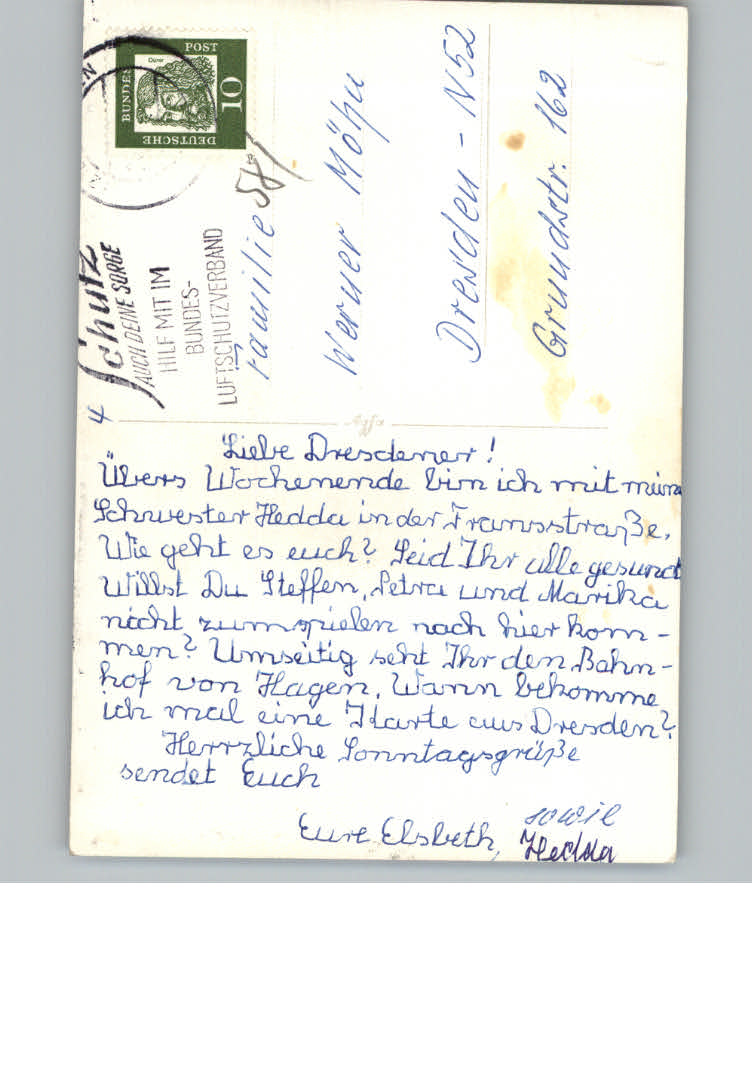 Dürer
DEUTSCHE
BUNDES
POST
10
Schutz
AUCH DEINE SORGE
HILF MIT IM
BUNDES-
LUFTSCHUTZVERBAND
58
Familie
Werner
Dresden - N52
Grundstr. 162
4
Agfa
Liebe Dresdener!
Übers Wochenende bin ich mit meine
Schwester Hedda in der Fransstraße.
Wie geht es euch? Seid Ihr alle gesund
Willst Du Steffen, Petra und Marika
nicht zum spielen nach hier kom-
men? Umseitig seht Ihr den Bahn-
hof von Hagen. Wann bekomme
ich mal eine Karte aus Dresden?
Herrzliche Sonntagsgrüße
sendet Euch
Eure Elsbeth, sowie
Hedda